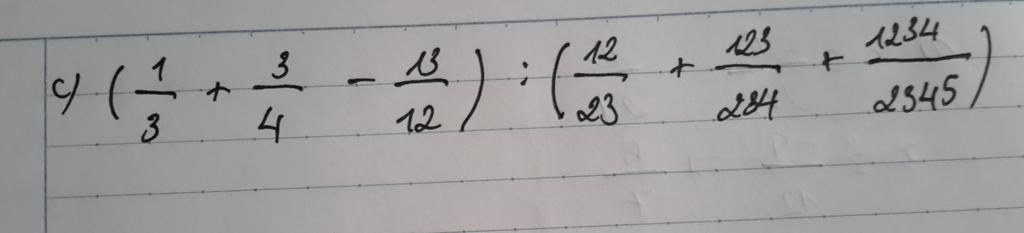 c) (1/3 + 3/4 - 13/12) : (12/23 + 123/234 + 1234/2345)